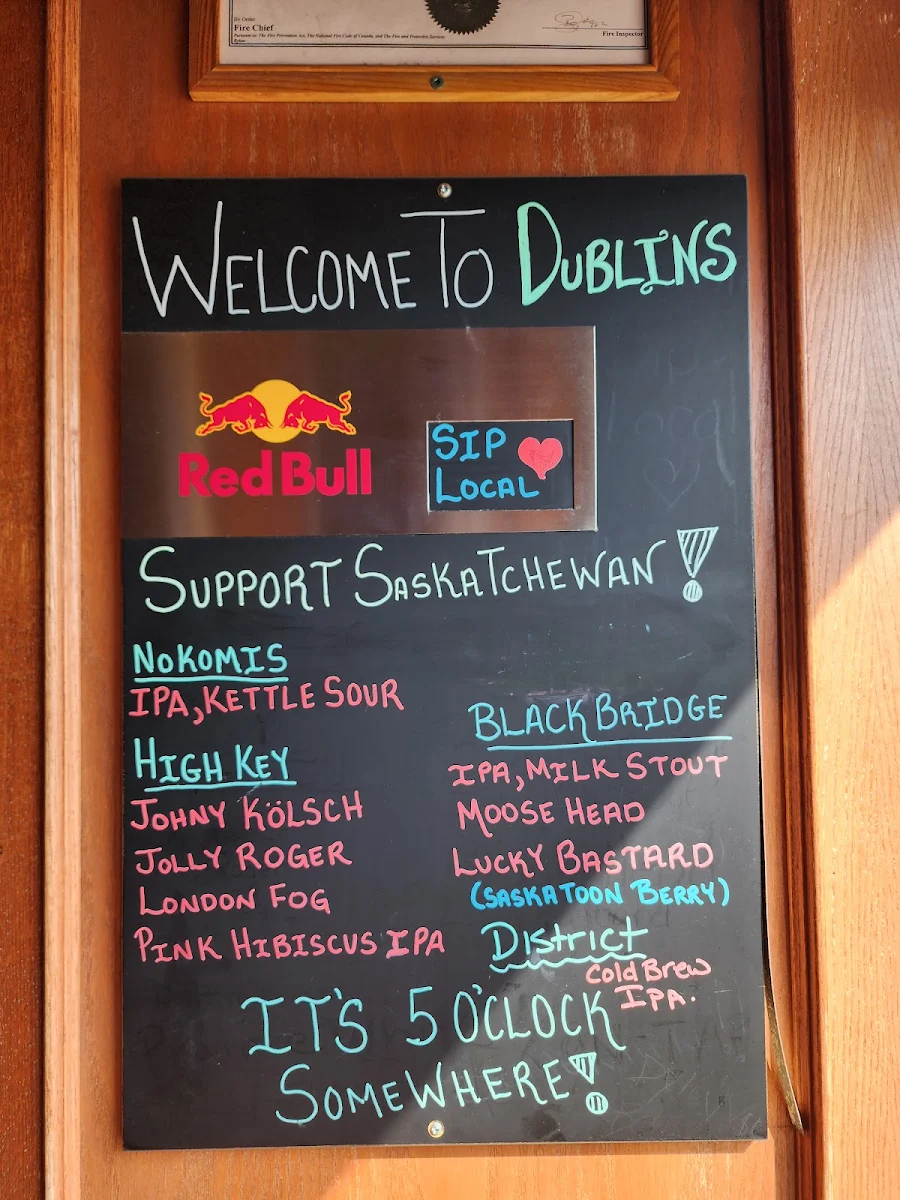 By Order
Fire Chief
Pursuant to: The Fire Prevention Act, The National Fire Code of Canada, and The Fire and Protective Services
Bylaw
Fire Inspector
WELCOME TO DUBLINS
Red Bull
SIP
LOCAL
SUPPORT SASKATCHEWAN!
NOKOMIS
IPA, KETTLE SOUR
HIGH KEY
JOHNY KÖLSCH
JOLLY ROGER
LONDON FOG
PINK HIBISCUS IPA
BLACK BRIDGE
IPA, MILK STOUT
MOOSE HEAD
LUCKY BASTARD
(SASKATOON BERRY)
District
Cold Brew
IPA.
IT'S 5 O'CLOCK
SOMEWHERE!